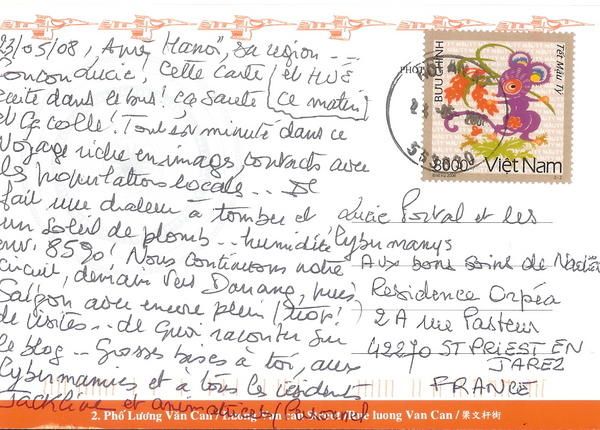 23/05/08, Après Hanoï, sa région...
cette carte et HUÉ
écrite dans le bus! ça saute (ce matin)
et ça colle! Tout est minuté dans ce
voyage riche en images, contacts avec
les populations locales... Il
fait une chaleur à tomber et
un soleil de plomb... humidité
env. 85%! Nous continuons notre
circuit, demain vers Danang, puis
Saïgon avec encore plein (trop!)
de visites... de quoi raconter sur
le blog... Grosses bises à toi, aux
Cybermamies et à tous les résidents
Jackline et animatrices/Personnel
BƯU CHÍNH
Tết Mậu Tý
8000đ
Việt Nam
Lucie Portal et les
Cybermamys
Aux bons soins de
Residence Orpéa
2A rue Pasteur
42270 ST PRIEST EN
JAREZ
FRANCE
2. Phố Lương Văn Can / Luong Van Can Street / Rue luong Van Can / 梁文杆街